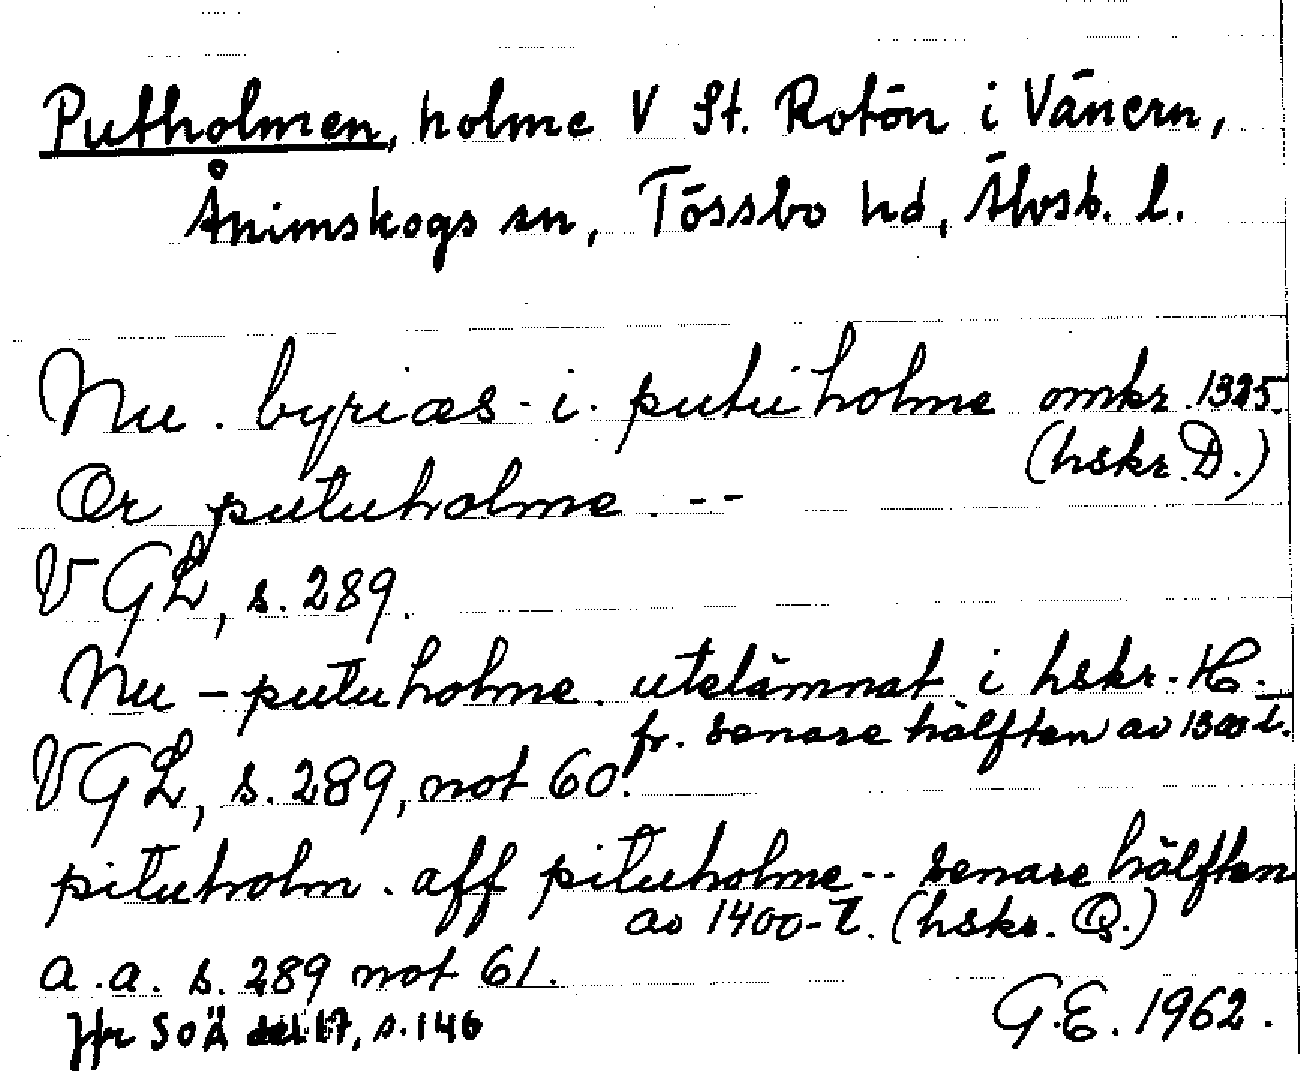 Putholmen, holme V St. Rotön i Vänern,
Ånimskogs sn, Tössbo hd, Älvsb. l.
Nu . byriæs . i . putu holme omkr. 1325.
(hskr. D.)
Or putuholme . --
VGL, s. 289.
Nu - putuholme . utelämnat i hskr. H. -
fr. senare hälften av 1300 t.
VGL, s. 289, not 60.
pituholm . aff pituholme -- senare hälften
av 1400-t. (hskr. Q.)
a.a. s. 289 not 61.
Jfr SOÄ del 17, s. 146
G.E. 1962.